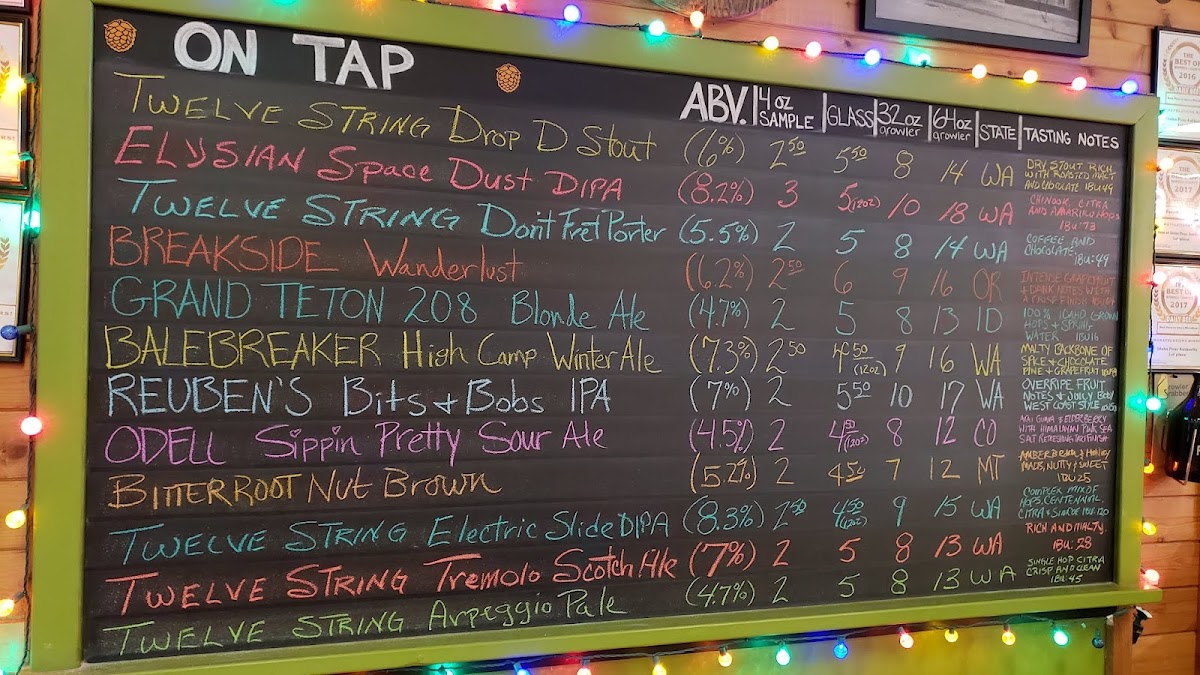 ON TAP
ABV. | 4 oz SAMPLE | GLASS | 32 oz growler | 64 oz growler | STATE | TASTING NOTES
TWELVE STRING Drop D Stout (6%) 2 50 5 50 8 14 WA
DRY STOUT RICH
WITH ROASTED MALT
AND CHOCOLATE IBU 49
ELYSIAN Space Dust DIPA (8.2%) 3 5 (12OZ) 10 18 WA
CHINOOK, CITRA
AND AMARILLO HOPS
IBU 73
TWELVE STRING Don't Fret Porter (5.5%) 2 5 8 14 WA
COFFEE AND
CHOCOLATE
IBU: 49
BREAKSIDE Wanderlust (6.2%) 2 50 6 9 16 OR
INTENSE GRAPEFRUIT
+ DANK NOTES WITH
A CRISP FINISH
GRAND TETON 208 Blonde Ale (4.7%) 2 5 8 13 ID
100% IDAHO GROWN
HOPS + SPRING
WATER IBU 16
BALEBREAKER High Camp Winter Ale (7.3%) 2 50 4 50 (12OZ) 9 16 WA
MALTY BACKBONE OF
SPICE + CHOCOLATE
PINE + GRAPEFRUIT
REUBEN'S Bits + Bobs IPA (7%) 2 5 50 10 17 WA
OVERRIPE FRUIT
NOTES & JUICY
WEST COAST STYLE
ODELL Sippin Pretty Sour Ale (4.5%) 2 4 50 (12OZ) 8 12 CO
ACAI GUAVA & ELDERBERRY
WITH HIMALAYAN PINK SEA
SALT REFRESHING FINISH
BITTERROOT Nut Brown (5.2%) 2 4 50 7 12 MT
AMBER BROWN & HONEY
MALTS, NUTTY & SWEET
IBU 25
TWELVE STRING Electric Slide DIPA (8.3%) 2 50 4 50 (12OZ) 9 15 WA
COMPLEX MIX OF
HOPS, CENTENNIAL,
CITRA & SIMCOE IBU: 120
TWELVE STRING Tremolo Scotch Ale (7%) 2 5 8 13 WA
RICH AND MALTY.
IBU: 28
TWELVE STRING Arpeggio Pale (4.7%) 2 5 8 13 WA
SINGLE HOP CITRA
CRISP AND CLEAN
IBU: 45
THE
BEST OF
2016
2017
BEST OF
2017